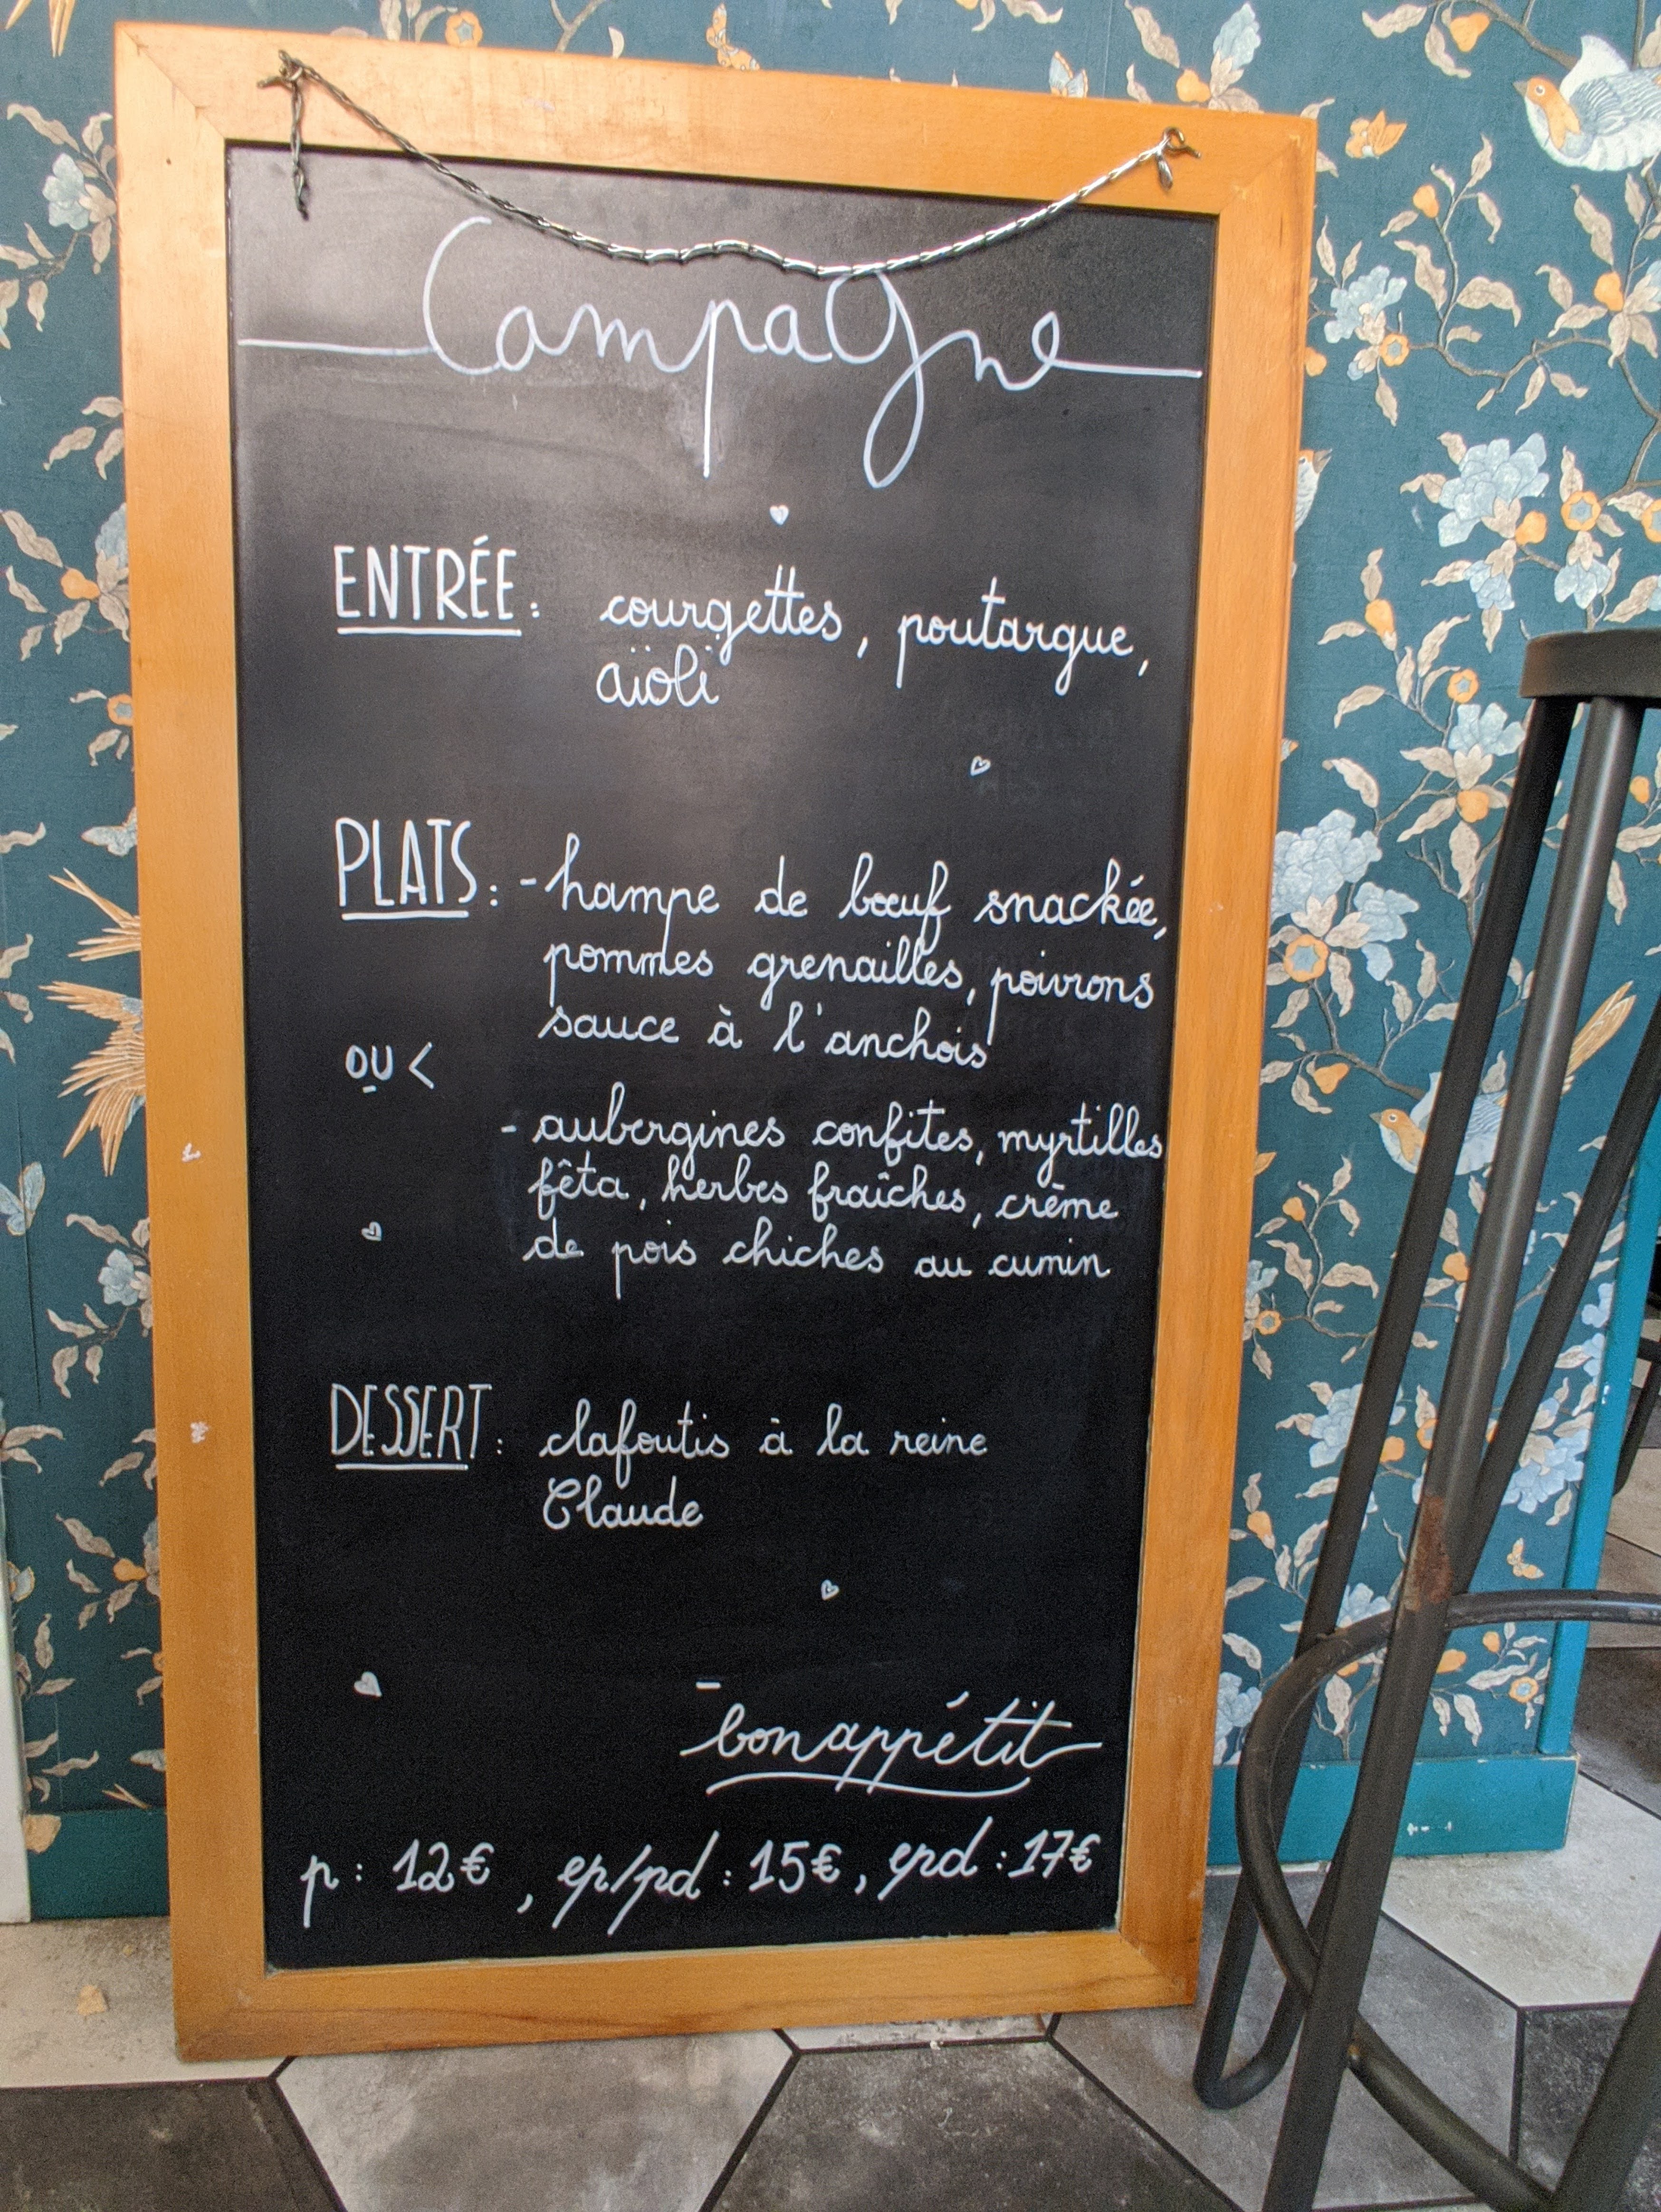 Campagne
ENTRÉE : courgettes, poutargue,
aïoli
PLATS : - hampe de bœuf snackée,
pommes grenailles, poivrons
sauce à l'anchois
OU <
- aubergines confites, myrtilles
fêta, herbes fraîches, crème
de pois chiches au cumin
DESSERT : clafoutis à la reine
Claude
bon appétit
p : 12€, ep/pd : 15€, epd : 17€